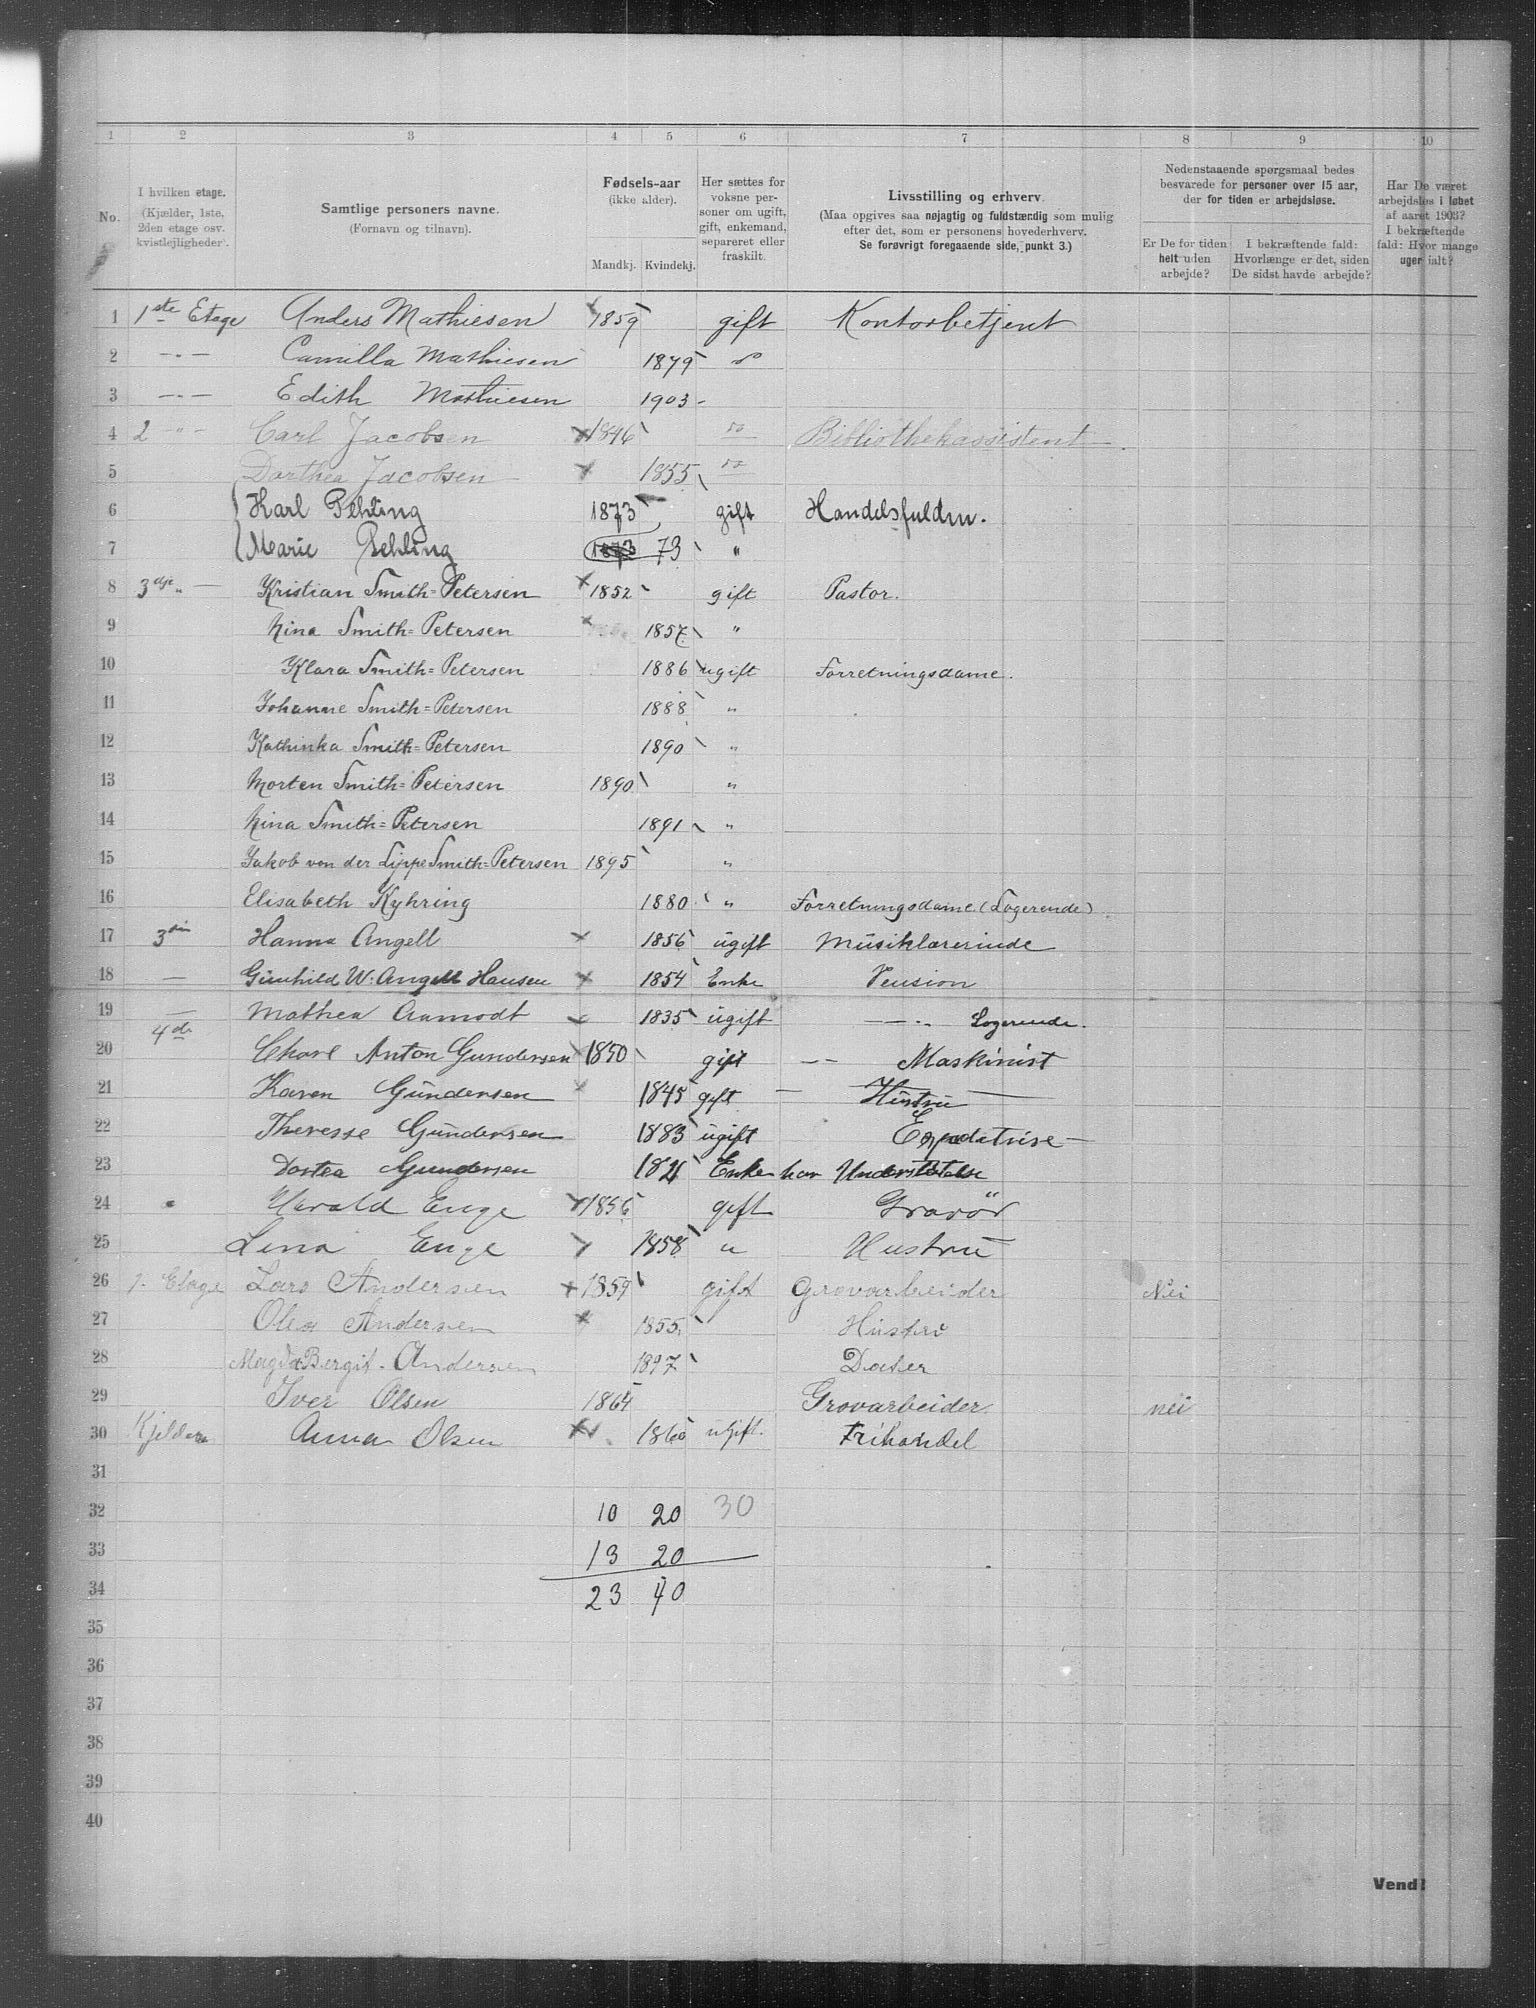 1 2 3 4 5 6 7 8 9 10
No.
I hvilken etage.
(Kjælder, 1ste,
2den etage osv.
kvistlejligheder).
Samtlige personers navne.
(Fornavn og tilnavn).
Fødsels-aar
(ikke alder).
Mandkj. Kvindekj.
Her sættes for
voksne per-
soner om ugift,
gift, enkemand,
separeret eller
fraskilt.
Livsstilling og erhverv.
(Maa opgives saa nøjagtig og fuldstændig som mulig
efter det, som er personens hovederhverv.
Se forøvrigt foregaaende side, punkt 3.)
Nedenstaaende spørgsmaal bedes
besvarede for personer over 15 aar,
der for tiden er arbejdsløse.
Er De for tiden
helt uden
arbejde?
I bekræftende fald:
Hvorlænge er det, siden
De sidst havde arbejde?
Har De været
arbejdsløs i løbet
af aaret 1903?
I bekræftende
fald: Hvor mange
uger ialt?
1 1ste Etage Anders Mathiesen 1859 gift Kontorbetjent
2 -"- Camilla Mathiesen 1879 do
3 -"- Edith Mathiesen 1903
4 2 -"- Carl Jacobsen 1846 do Bibliothekassistent
5 Dorthea Jacobsen 1855 do
6 Karl Pehling 1873 gift Handelsfuldm.
7 Marie Pehling 1873 73 "
8 3dje " Kristian Smith=Petersen 1852 gift Pastor.
9 Nina Smith=Petersen 1857 "
10 Klara Smith=Petersen 1886 ugift Forretningsdame.
11 Johanne Smith=Petersen 1888 "
12 Kathinka Smith=Petersen 1890 "
13 Morten Smith=Petersen 1890 "
14 Nina Smith=Petersen 1891 "
15 Jakob von der Lippe Smith=Petersen 1895 "
16 Elisabeth Kyhring 1880 " Forretningsdame. (Logerende)
17 3die Hanna Angell 1856 ugift Musiklærerinde
18 — Gunhild W. Angell Hansen 1854 Enke Pension
19 — Mathea Aamodt 1835 ugift —"— Logerende.
20 4de Charl Anton Gundersen 1850 gift Maskinist
21 Karen Gundersen 1845 gift Hustru
22 Theresse Gundersen 1883 ugift Expedtrise
23 Dortea Gundersen 1821 Enke har Understøtelse
24 Harald Enge 1856 gift Gravör
25 Lina Enge 1858 " Hustru
26 1. Etage Lars Andersen 1859 gift Grovarbeider Nei
27 Olea Andersen 1855 Hustru
28 Magda Bergit Andersen 1897 Dater
29 Iver Olsen 1864 Grovarbeider. nei
30 Kjelder Anna Olsen 1860 ugift. Frihandel
31
32 10 20 30
33 13 20
34 23 40
35
36
37
38
39
40
Vend!